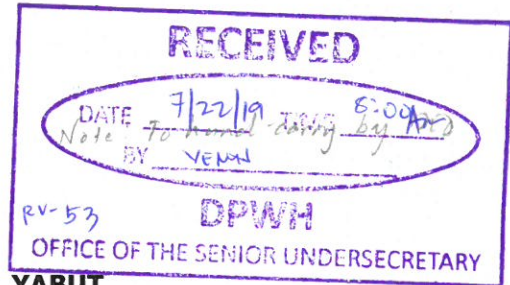 RECEIVED
DATE 7/22/19 TIME 8:00 Am
Note: To hand-carry by
BY VENUS
RV-53
DPWH
OFFICE OF THE SENIOR UNDERSECRETARY
YABUT